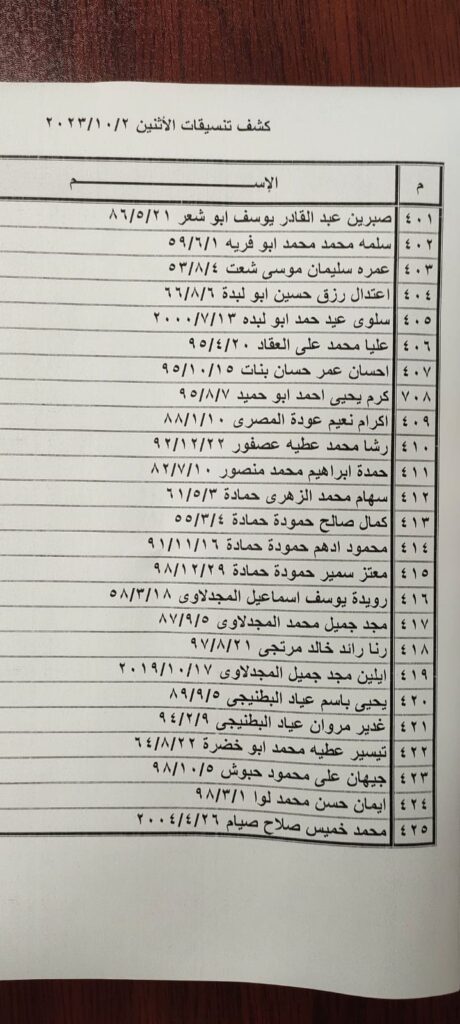 كشف تنسيقات الأثنين ٢٠٢٣/١٠/٢
م الإســـــــــم
٤٠١ صبرين عبد القادر يوسف ابو شعر ٨٦/٥/٢١
٤٠٢ سلمه محمد محمد ابو فريه ٥٩/٦/١
٤٠٣ عمره سليمان موسى شعت ٥٣/٨/٤
٤٠٤ اعتدال رزق حسين ابو لبدة ٦٦/٨/٦
٤٠٥ سلوى عيد حمد ابو لبده ٢٠٠٠/٧/١٣
٤٠٦ عليا محمد على العقاد ٩٥/٤/٢٠
٤٠٧ احسان عمر حسان بنات ٩٥/١٠/١٥
٧٠٨ كرم يحيى احمد ابو حميد ٩٥/٨/٧
٤٠٩ اكرام نعيم عودة المصرى ٨٨/١/١٠
٤١٠ رشا محمد عطيه عصفور ٩٢/١٢/٢٢
٤١١ حمدة ابراهيم محمد منصور ٨٢/٧/١٠
٤١٢ سهام محمد الزهرى حمادة ٦١/٥/٣
٤١٣ كمال صالح حمودة حمادة ٥٥/٣/٤
٤١٤ محمود ادهم حمودة حمادة ٩١/١١/١٦
٤١٥ معتز سمير حمودة حمادة ٩٨/١٢/٢٩
٤١٦ رويدة يوسف اسماعيل المجدلاوى ٥٨/٣/١٨
٤١٧ مجد جميل محمد المجدلاوى ٨٧/٩/٥
٤١٨ رنا رائد خالد مرتجى ٩٧/٨/٢١
٤١٩ ايلين مجد جميل المجدلاوى ٢٠١٩/١٠/١٧
٤٢٠ يحيى باسم عياد البطنيجى ٨٩/٩/٥
٤٢١ غدير مروان عياد البطنيجى ٩٤/٢/٩
٤٢٢ تيسير عطيه محمد ابو خضرة ٦٤/٨/٢٢
٤٢٣ جيهان على محمود حبوش ٩٨/١٠/٥
٤٢٤ ايمان حسن محمد لوا ٩٨/٣/١
٤٢٥ محمد خميس صلاح صيام ٢٠٠٤/٤/٢٦